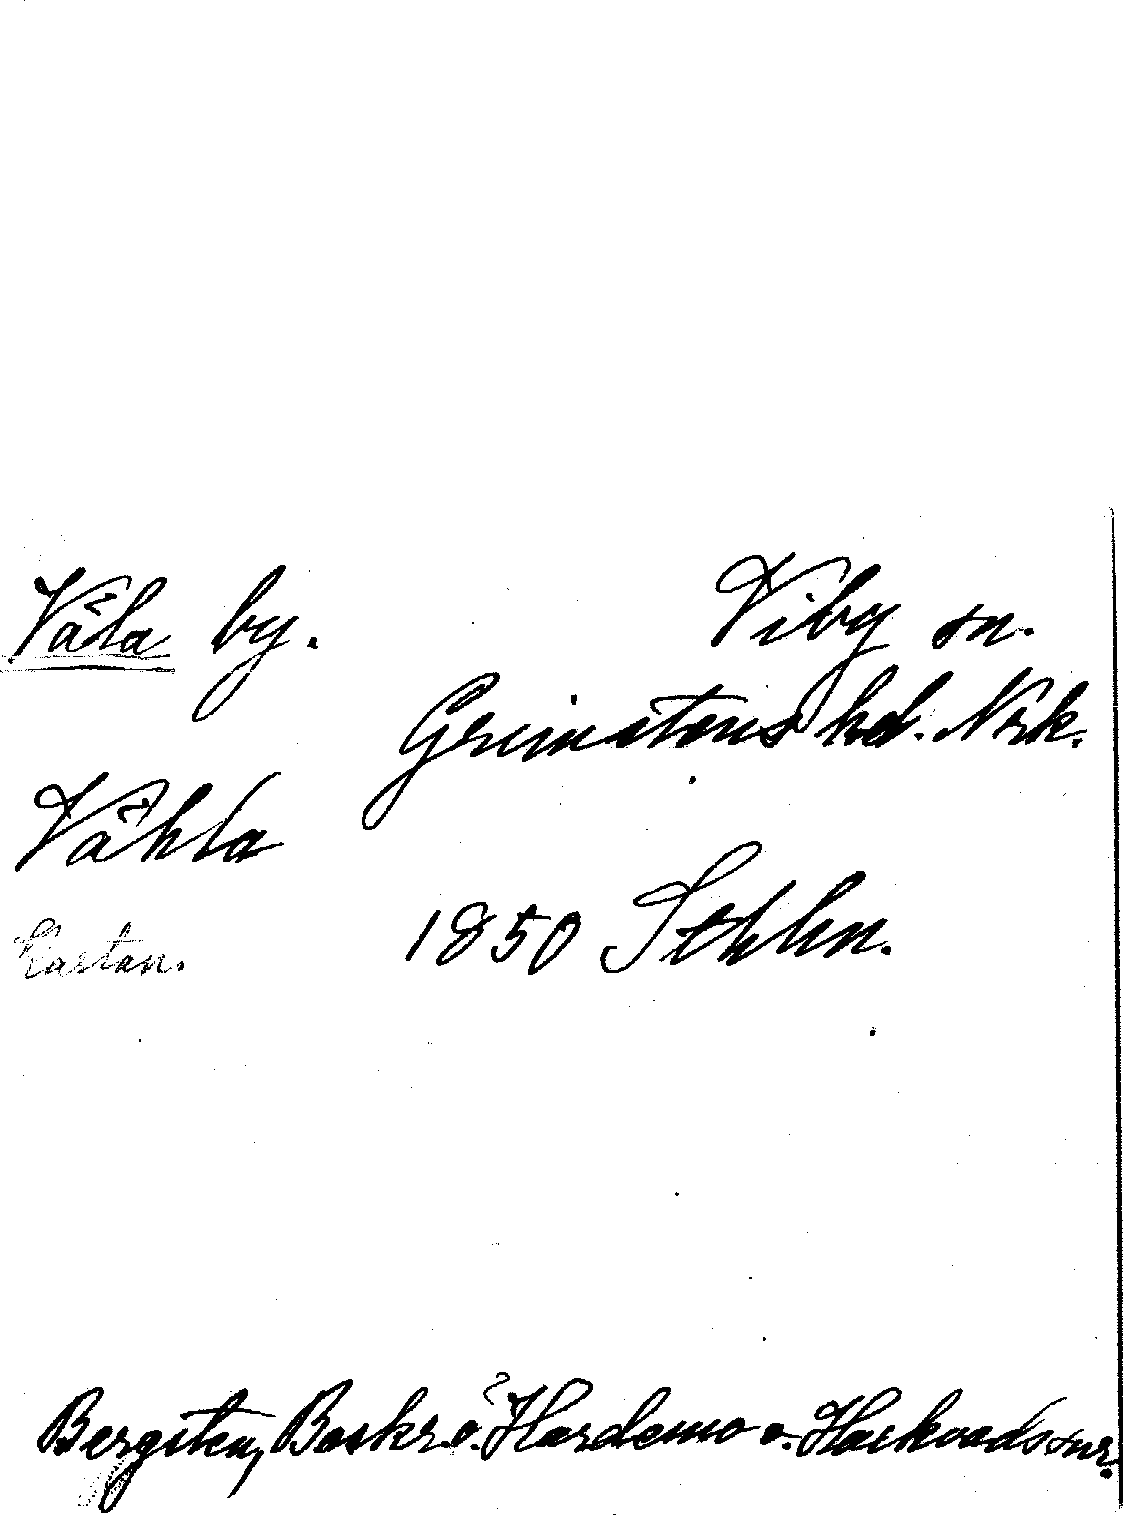 Våla by. Viby sn.
Grimstens hd. Närk.
Våhla
Kartan. 1850 Sthlm.
Bergsten, Beskr. ö. Hardemo o. Hackvads snr.